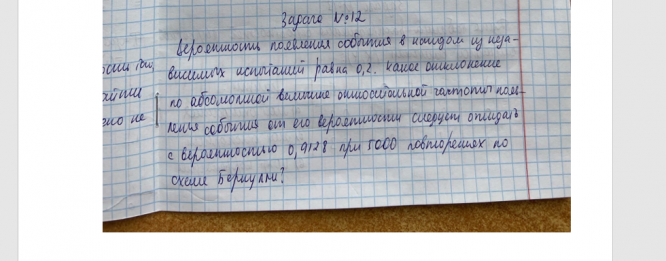 Задача №12
Вероятность появления события в каждом из неза-
висимых испытаний равна 0,2. Какое отклонение
по абсолютной величине относительной частоты появ-
ления события от его вероятности следует ожидать
с вероятностью 0,9128 при 5000 повторениях по
схеме Бернулли?
но не